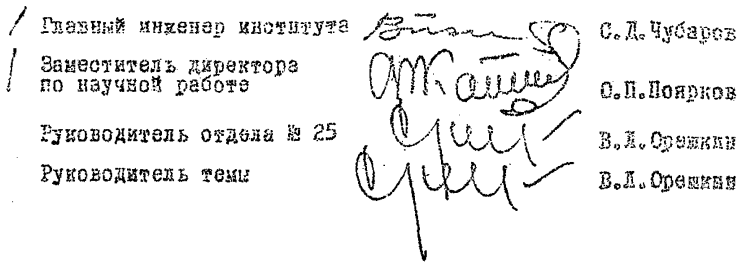 Главный инженер института С.Д.Чубаров
Заместитель директора
по научной работе О.П.Поярков
Руководитель отдела № 25 В.Л.Орешкин
Руководитель темы В.Л.Орешкин